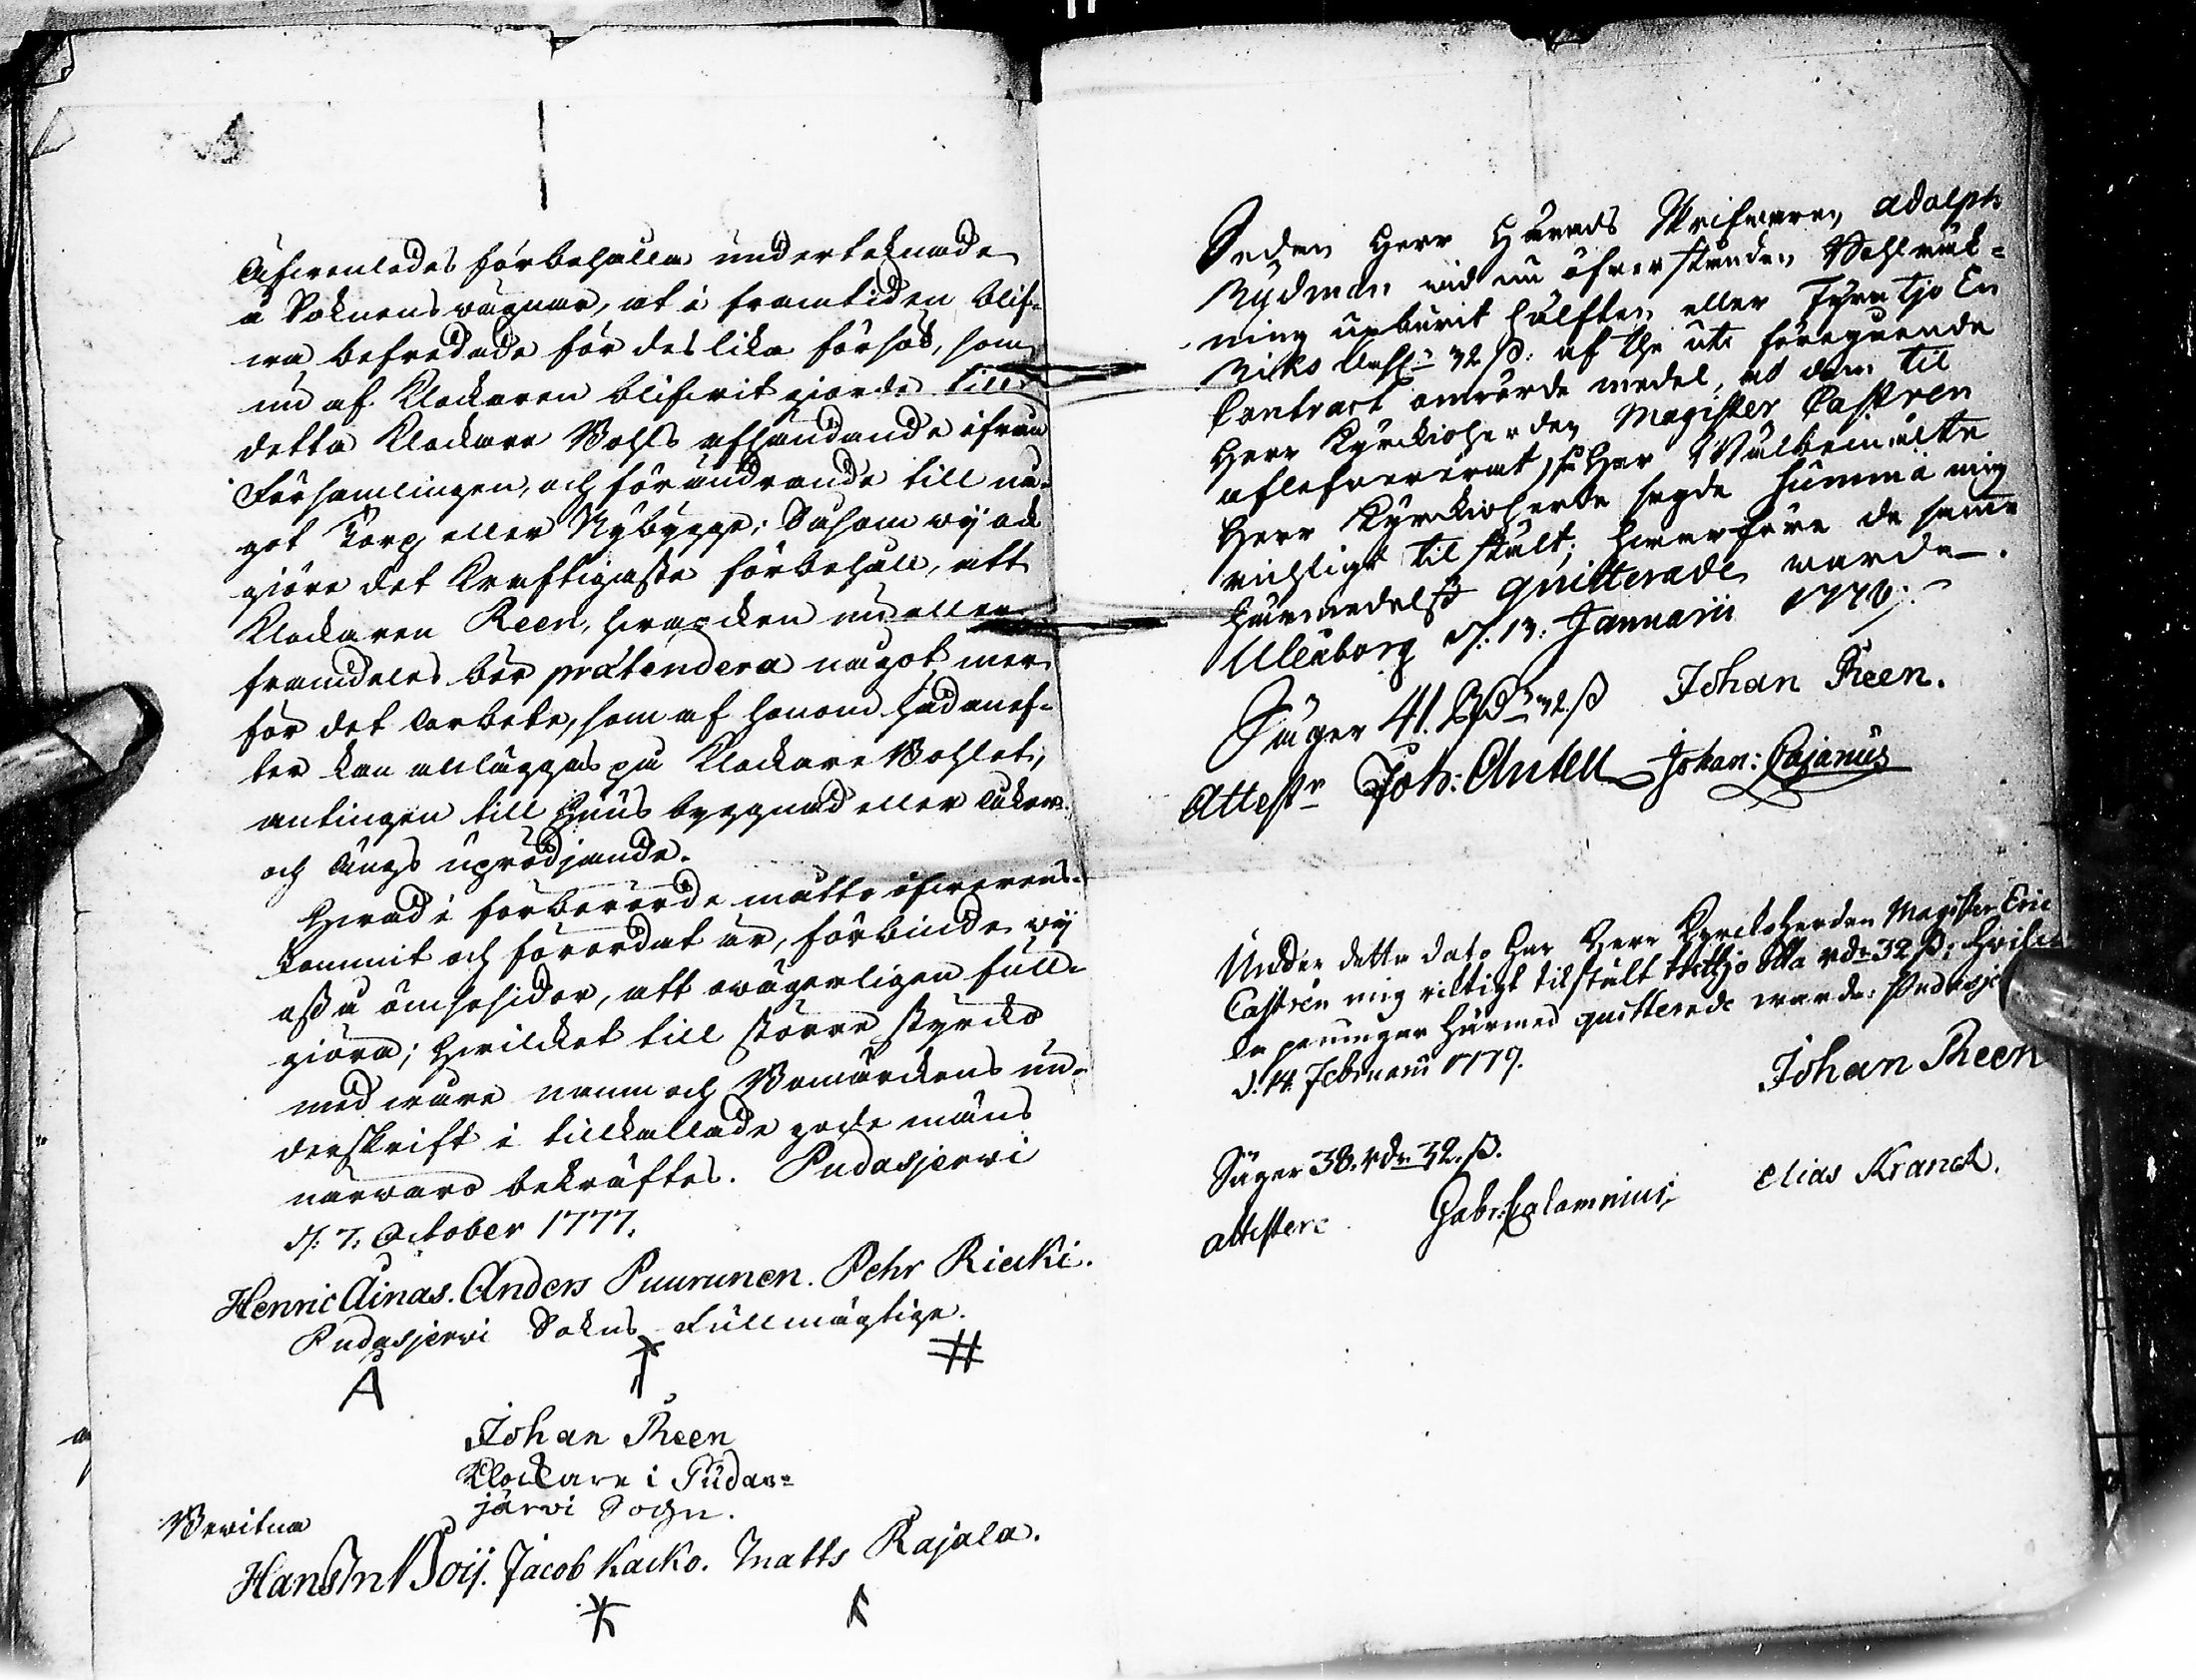 Äfwenledes förbehålla undertecknade
å Soknens wägnar, at i framtiden blif-
wa befredade för deslika försök, som
nu af Klockaren blifwit giorde till
detta Klockare Bohls afhändande ifrån
Församlingen, och förändrande till nå-
got Torp eller Nybygge; Såsom wij ock
giöre det kraftigaste förbehåll, att
Klockaren Reen, hwarcken nu eller
framdeles bör prætendera något mer
för det arbete, som af honom hädanef-
ter kan anläggas på Klockare Bohlet,
antingen till Huus byggnad eller Åker
och Ängs uprödjande.
Hwad i förberörde måtto öfwerens-
kommit och förordat är, förbinde wij
oss å ömsesidor, att owägerligen full-
giöra; hwilcket till större styrcko
med wåre namn och Bomärckens un-
derskrift i tillkallade gode mäns
närwaro bekräftes. Pudasjerwi
d. 7. October 1777.
Henric Ainas. Anders Puurunen. Pehr Riecki.
Pudasjerwi Sokns Fullmägtige.
Johan Reen
Klockare i Pudas-
järwi Sogn.
Bewitna
Hans Boij. Jacob Kacko. Matts Rajala.
Sedan Herr Härads Skrifwaren Adolph
Nydman wid nu öfwerståndne Wahlräk-
ning upburit hälften eller Fyratijo En
Riks 32 s: af the uti föregående
Contract omrörde medel, at dem til
Herr Kyrckioherden Magister Castren
aflefwererat, så har Wälbemälte
Herr Kyrckioherde segde Summa mig
richtigt tilstält; hwarföre de samme
härmedelst quitterade warde.
Uleåborg d. 13: Januarii 1778.
Säger 41. Rd 32. s Johan Reen.
Attest Joh: Antell Johan: Cajanus
Under detta dato har Herr Kyrckoherden Magister Eric
Castrén mig riktigt tilstält trettjo åtta rdr 32 s; hwilc
ka penningar härmed quitterade warda: Pudasje
d. 14. Februarii 1779.
Johan Reen
Säger 38. rdr. 32. s.
attestera Gabr: Calamnius Elias Kranck.